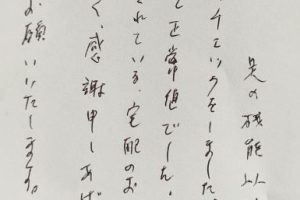 晃の機能が
チェックをしました
と正常値でした。
されている、宅配のお
く、感謝申しあげ
お願いいたします。